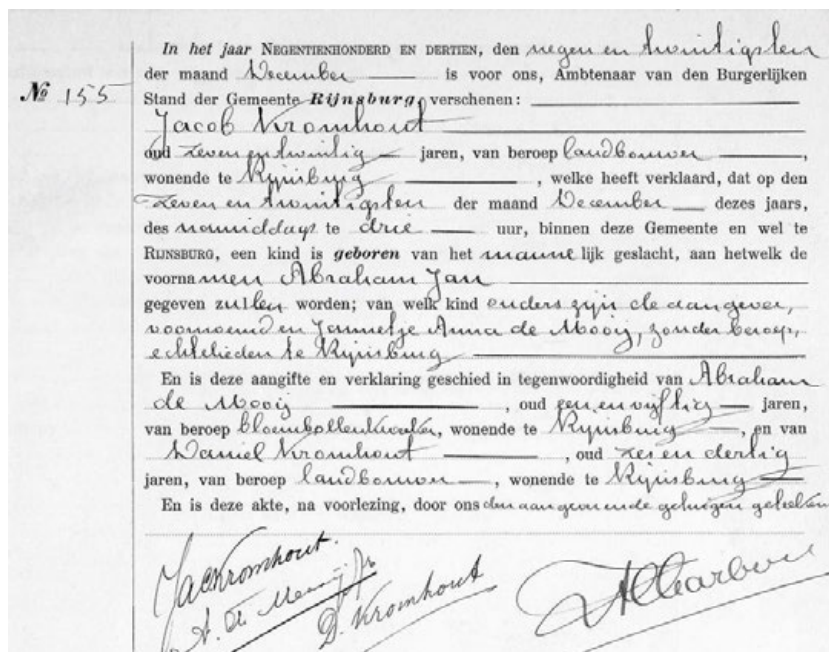 In het jaar NEGENTIENHONDERD EN DERTIEN, den negen en twintigsten
der maand December is voor ons, Ambtenaar van den Burgerlijken
№ 155 Stand der Gemeente Rijnsburg, verschenen:
Jacob Kromhout
oud zeven en twintig jaren, van beroep landbouwer,
wonende te Rijnsburg, welke heeft verklaard, dat op den
zeven en twintigsten der maand December dezes jaars,
des namiddags te drie uur, binnen deze Gemeente en wel te
RIJNSBURG, een kind is geboren van het mannelijk geslacht, aan hetwelk de
voornamen Abraham Jan
gegeven zullen worden; van welk kind ouders zijn de aangever,
voornoemd en Jannetje Anna de Mooij, zonder beroep,
echtelieden te Rijnsburg
En is deze aangifte en verklaring geschied in tegenwoordigheid van Abraham
de Mooij, oud een en vijftig jaren,
van beroep bloembollenkweeker, wonende te Rijnsburg, en van
Daniel Kromhout, oud zes en dertig
jaren, van beroep landbouwer, wonende te Rijnsburg
En is deze akte, na voorlezing, door ons den aangever en de getuigen geteekend
Jac Kromhout.
A. de Mooij Jz
D. Kromhout